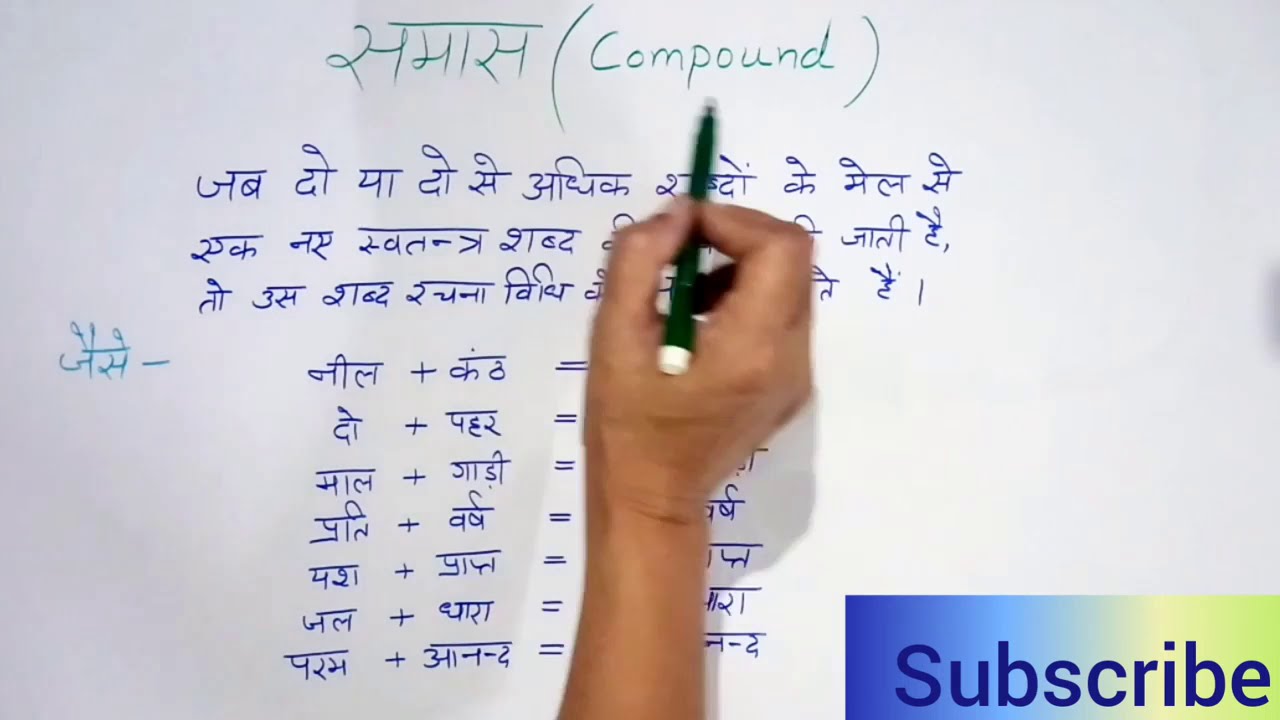 समास (Compound)
जब दो या दो से अधिक शब्दों के मेल से
एक नए स्वतन्त्र शब्द जाती है,
तो उस शब्द रचना विधि हैं।
जैसे -
नील + कंठ =
दो + पहर =
माल + गाड़ी =
प्रति + वर्ष = वर्ष
यश + प्राप्त =
जल + धारा =
परम + आनन्द =
Subscribe